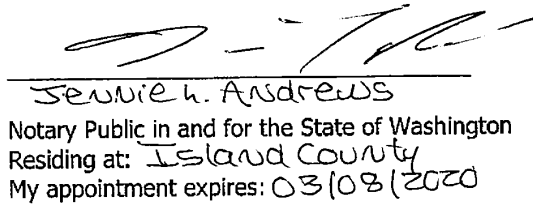 Jennie L. Andrews
Notary Public in and for the State of Washington
Residing at: Island County
My appointment expires: 03/08/2020